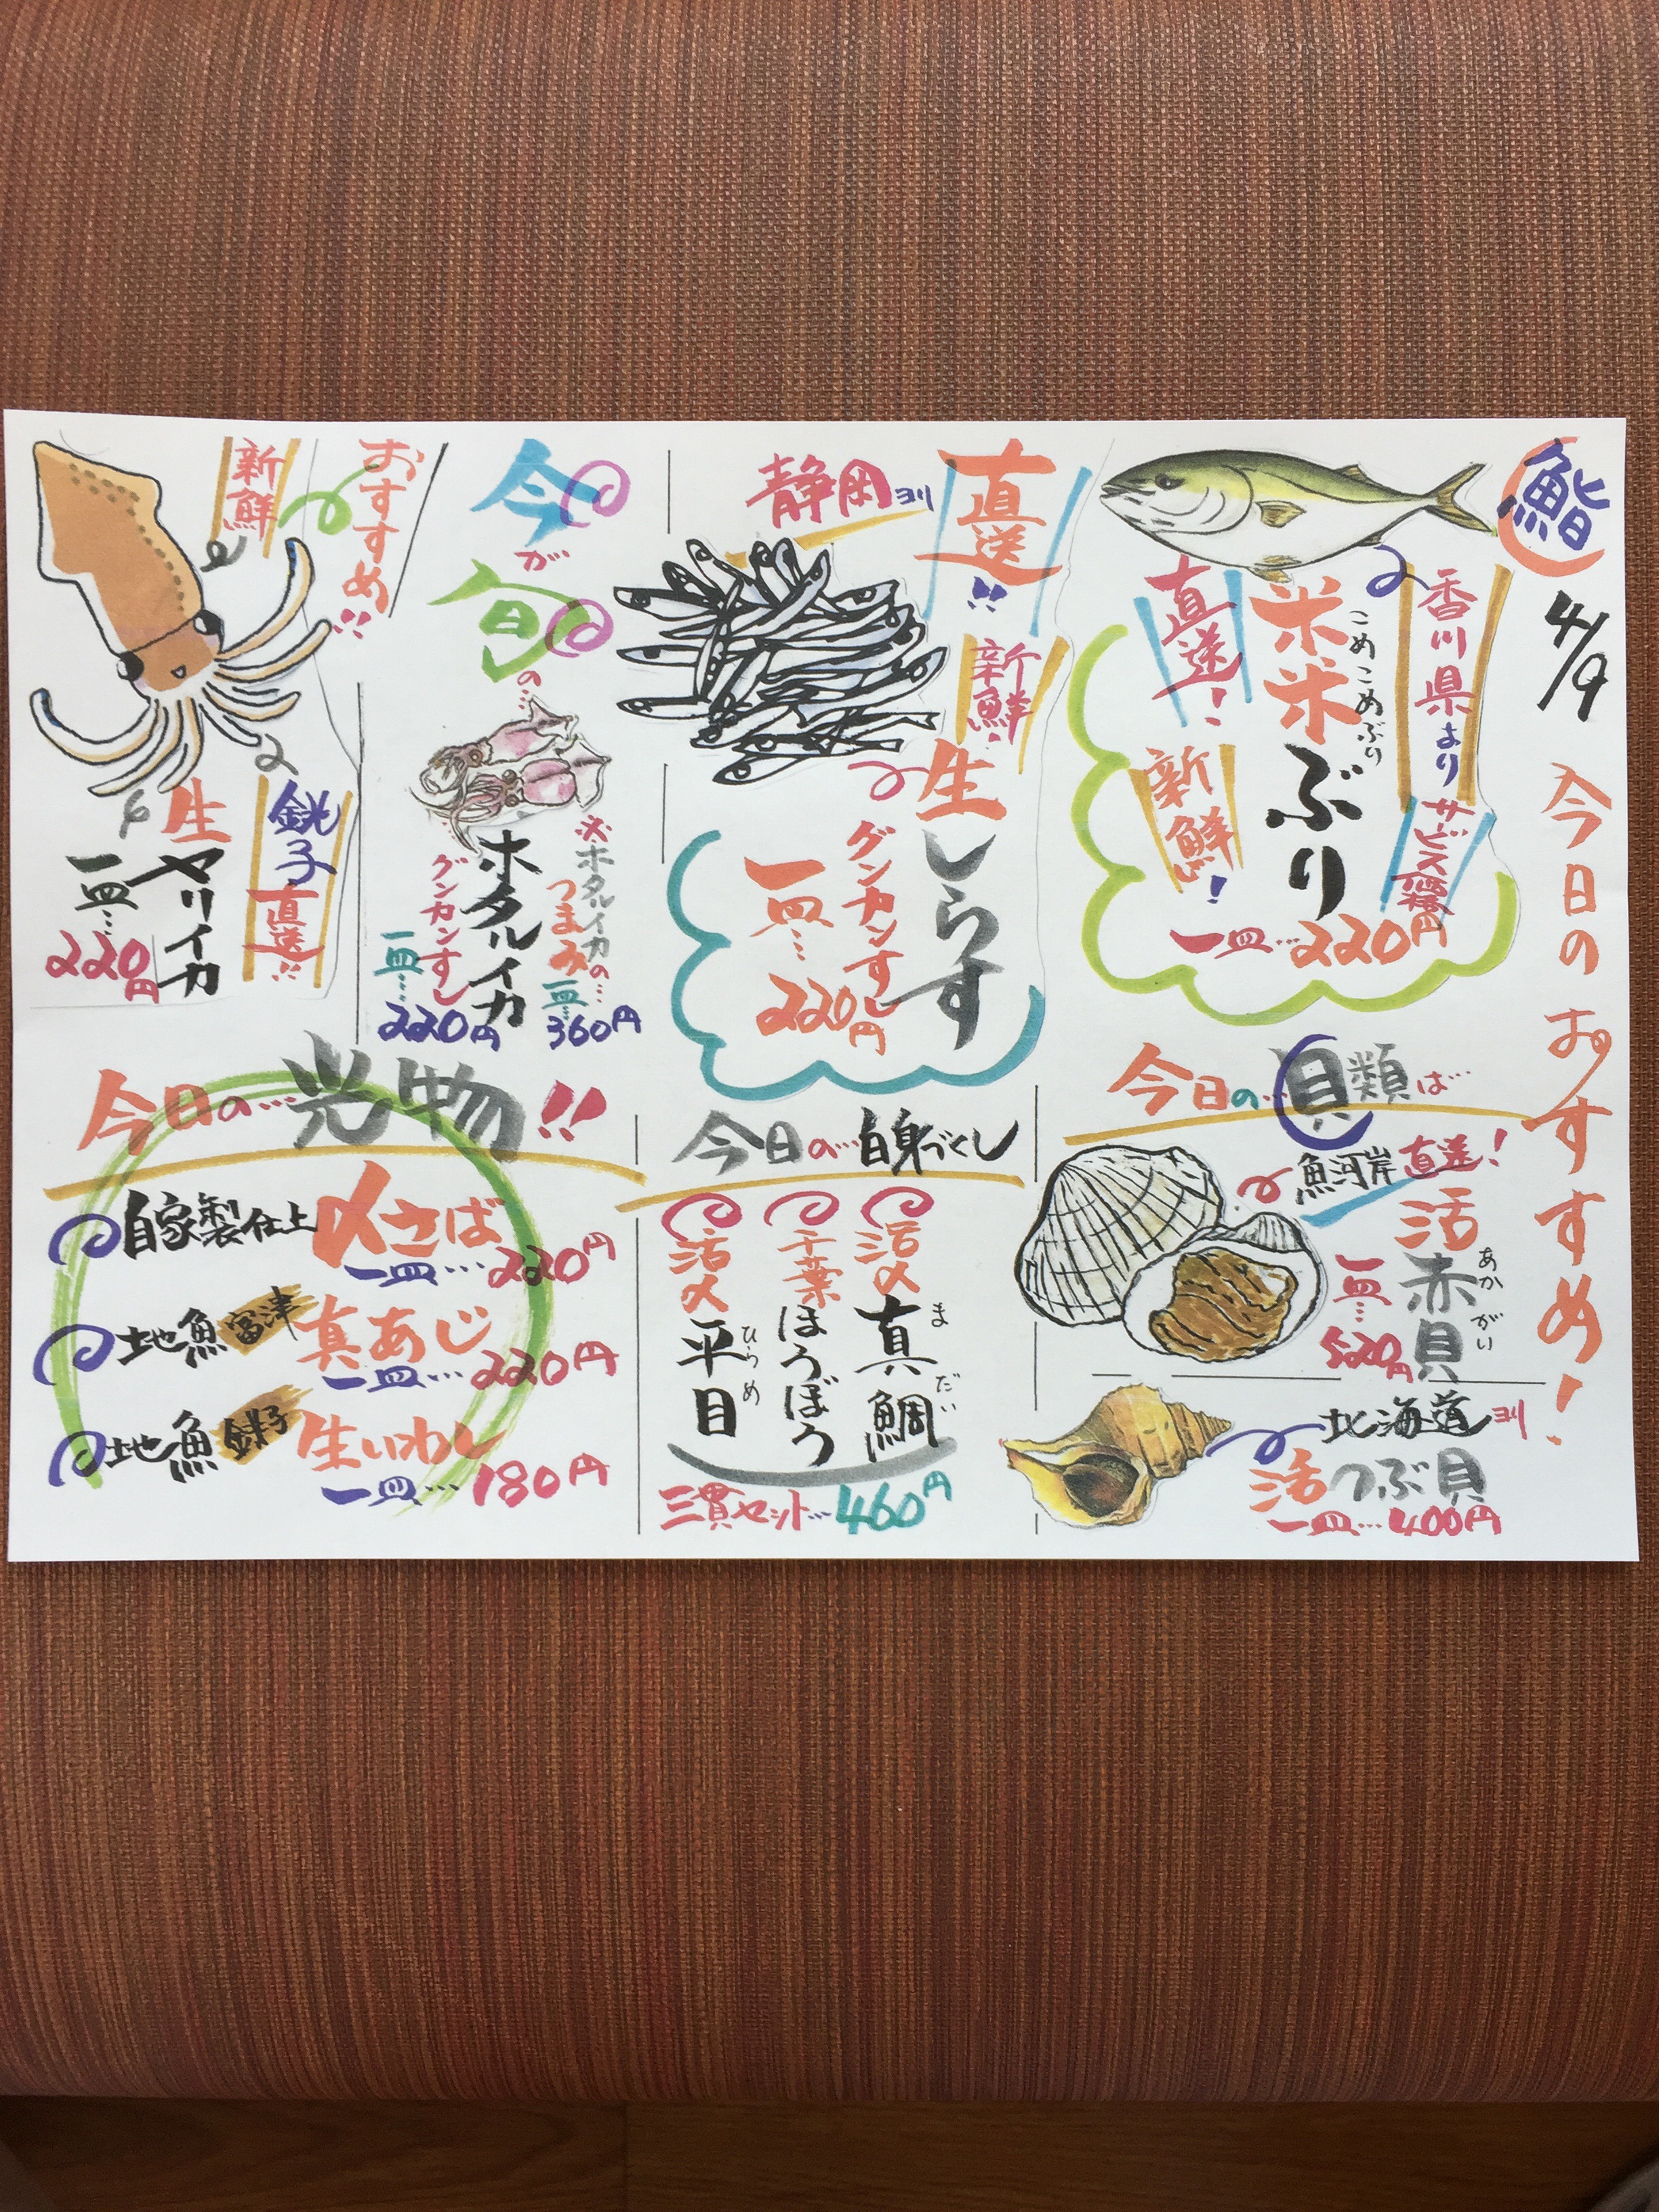 鮨
4/9
今日のおすすめ!
香川県より
サービス品
米米ぶり
こめこめぶり
直送!
新鮮!
一皿…220円
直送!!
静岡ヨリ
新鮮!
生しらす
グンカンすし
一皿…220円
今が旬の…
※ホタルイカの…
つまみ一皿…360円
ホタルイカ
グンカンすし
一皿…220円
おすすめ!!
新鮮
銚子直送!!
生ヤリイカ
一皿…220円
今日の…貝類は…
魚河岸直送!
活赤貝
あかがい
一皿…520円
北海道ヨリ
活つぶ貝
一皿…400円
今日の…白身づくし
活〆真鯛
まだい
千葉ほうぼう
活〆平目
ひらめ
三貫セット…460円
今日の…光物!!
自家製仕上〆さば
一皿…220円
地魚富津真あじ
一皿…220円
地魚銚子生いわし
一皿…180円